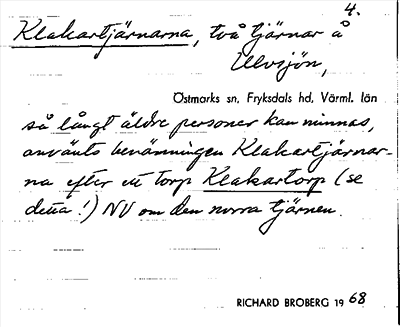 4.
Klakartjärnarna, två tjärnar å
Ulvsjön,
Östmarks sn, Fryksdals hd, Värml. län
så långt äldre personer kan minnas,
använts benämningen Klakartjärnar-
na efter ett torp Klakartorp (se
detta!) NV om den norra tjärnen.
RICHARD BROBERG 1968